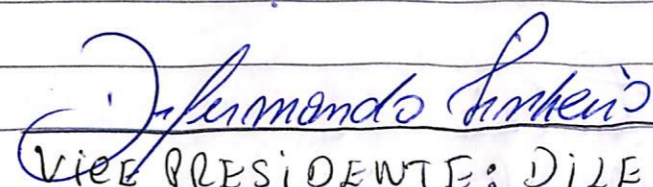 Fernando Pinheiro
VICE PRESIDENTE: DILE